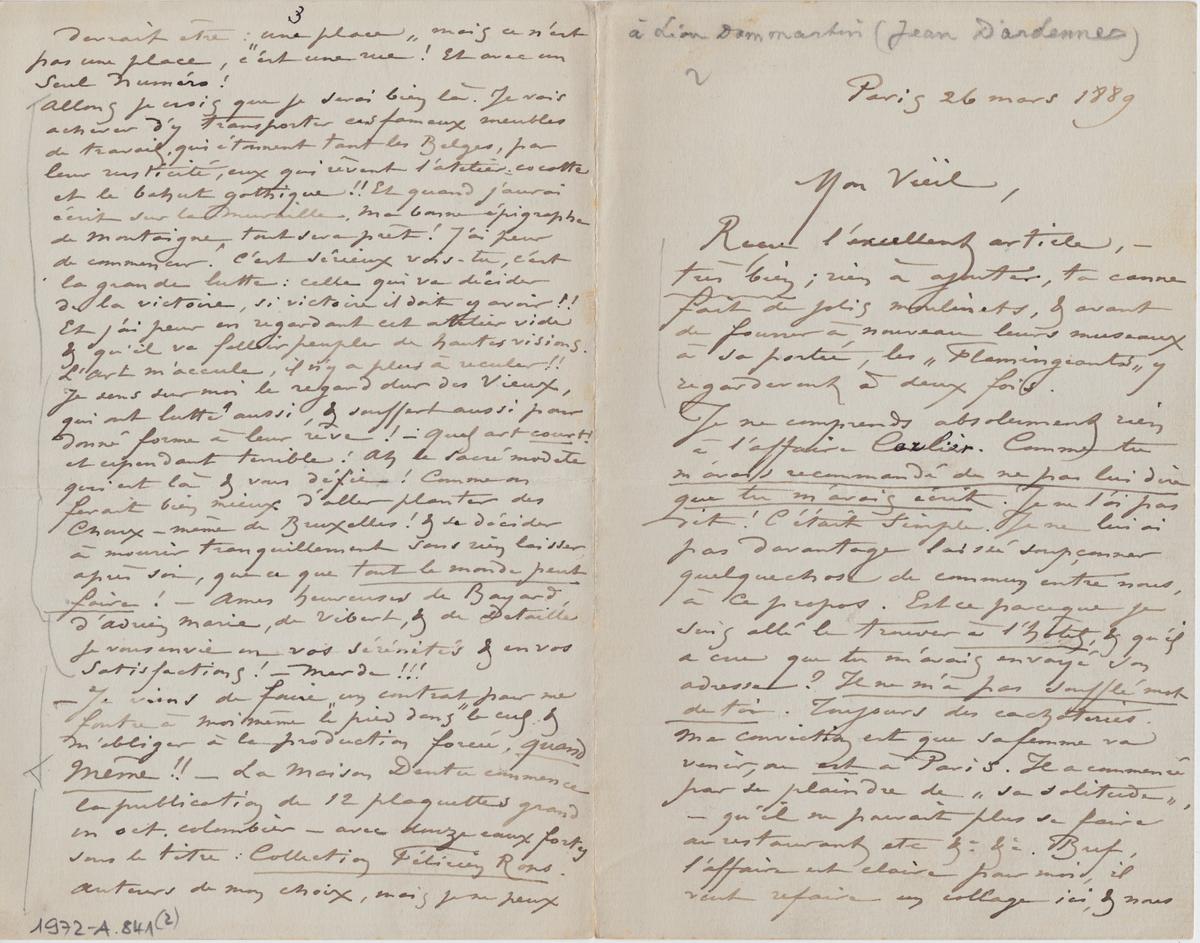 à Léon Dommartin (Jean D'Ardenne)
2
Paris 26 mars 1889
Mon Vieïl,
Reçu l'excellent article, —
très bien ; rien à ajouter, ta canne
fait de jolis moulinets, & avant
de fourrer à nouveau leurs museaux
à sa portée, les „Flamingeants„ y
regarderont à deux fois.
Je ne comprends absolument rien
à l'affaire Carlier. Comme tu
m'avais recommandé de ne pas lui dire
que tu m'avais écrit. Je ne l'ai pas
dit ! C'était simple. Je ne lui ai
pas davantage laissé soupçonner
quelquechose de commun entre nous,
à ce propos. Est ce parceque je
suis allé le trouver à l'hotel, & qu'il
a cru que tu m'avais envoyé son
adresse ? Il ne m'a pas soufflé mot
de toi. Toujours des cachoteries.
Ma conviction est que sa femme va
venir, ou est à Paris. Il a commencé
par se plaindre de „sa solitude„,
— qu'il ne pouvait plus se faire
au restaurant etc &c &c. Bref,
l'affaire est claire pour moi, il
veut refaire un collage ici, & nous
3
devrait être : une place „ mais ce n'est
pas une place, c'est une rue ! Et avec un
seul numéro !
Allons je crois que je serai bien là. Je vais
achever d'y transporter ces fameux meubles
de travail, qui étonnent tant les Belges, par
leur rusticité, eux qui rêvent l'atelier-cocotte
et le bahut gothique !! Et quand j'aurai
écrit sur la muraille, ma bonne épigraphe
de Montaigne, tout sera prêt ! J'ai peur
de commencer ! C'est sérieux vois-tu, c'est
la grande lutte : celle qui va décider
de la victoire, si victoire il doit y avoir !!
Et j'ai peur en regardant cet atelier vide
& qu'il va falloir peupler de hautes visions.
L'Art m'accule, il n'y a plus à reculer !!
Je sens sur moi le regard dur des Vieux,
qui ont lutté aussi, & souffert aussi pour
donné forme à leur rêve ! — Quel art court !
et cependant terrible ! Ah le sacré modèle
qui est là & vous défie ! Comme on
ferait bien mieux d'aller planter des
Choux — même de Bruxelles ! & se décider
à mourir tranquillement sans rien laisser
après soi, que ce que tout le monde peut
faire ! — Ames heureuses de Bayard
d'adrien marie, de Vibert, & de Detaille
je vous envie en vos sérénités & en vos
satisfactions ! — Merde !!!
— Je viens de faire un contrat pour me
foutre à moi même „le pied dans le cul„ &
m'obliger à la production forcée, quand
même !! — La Maison Dentu commence
la publication de 12 plaquettes grand
in oct. colombier — avec douze eaux fortes
sous le titre : Collection Félicien Rops.
auteurs de mon choix, mais je ne peux
1972-A.841(2)